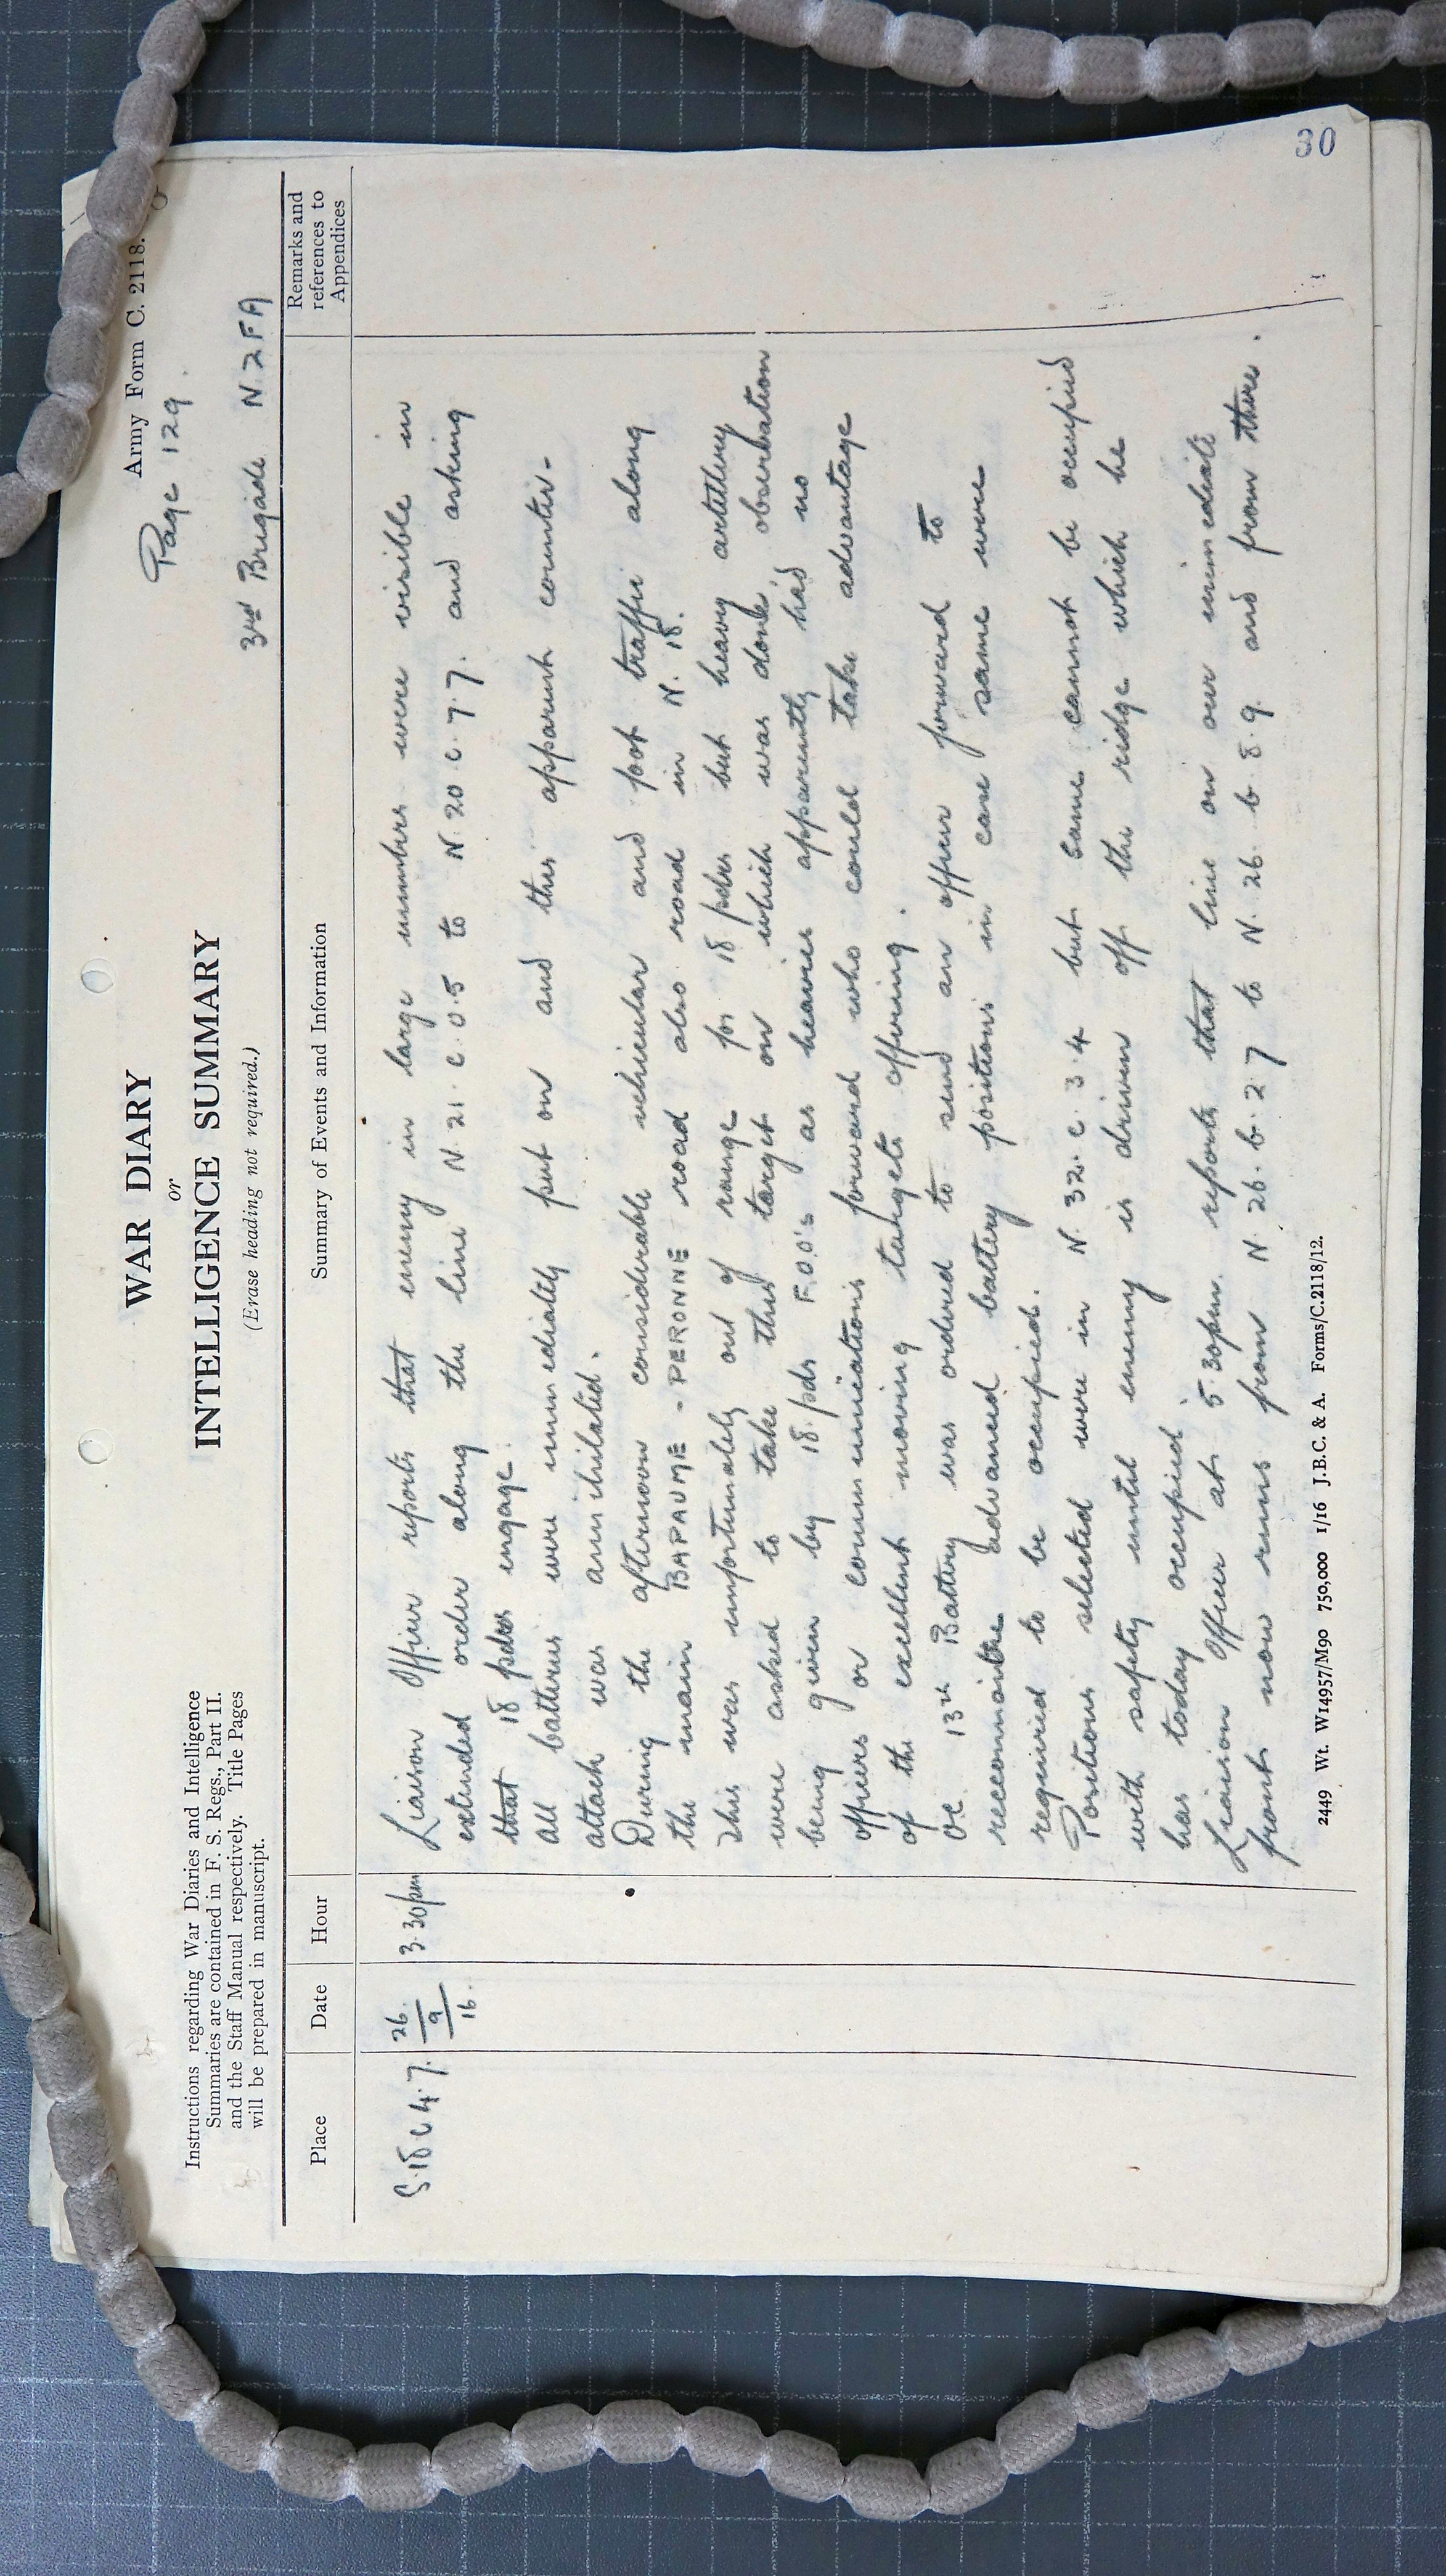 Army Form C. 2118.
Page 129.
WAR DIARY
or
INTELLIGENCE SUMMARY
(Erase heading not required.)
3rd Brigade N Z F A
Instructions regarding War Diaries and Intelligence
Summaries are contained in F. S. Regs., Part II.
and the Staff Manual respectively. Title Pages
will be prepared in manuscript.
Place Date Hour Summary of Events and Information Remarks and references to Appendices
S.18 c 4.7. 26/9/16. 3.30pm Liaison Officer reports that enemy in large numbers were visible in
extended order along the line N. 21. c. 0.5 to N. 20 c. 7.7. and asking
that 18 pdrs engage.
all batteries were immediately put on and this apparent counter-
attack was annihilated.
During the afternoon considerable vehicular and foot traffic along
the main BAPAUME - PERONNE road also road in N. 18.
This was unfortunately out of range for 18 pdrs but heavy artillery
were asked to take this target on which was done, observation
being given by 18 pdr F.O.O's as heavies apparently had no
officers or communications forward who could take advantage
of the excellent moving targets offering.
OC 13th Battery was ordered to send an officer forward to
reconnoitre advanced battery positions in case same were
required to be occupied.
Positions selected were in N. 32. c. 3.4 but same cannot be occupied
with safety until enemy is driven off the ridge which he
has today occupied.
Liaison Officer at 5.30pm. reports that line on our immediate
front now runs from N. 26. b. 2.7 to N. 26. b. 8.9 and from there.
2449 Wt. W14957/M90 750,000 1/16 J.B.C. & A. Forms/C.2118/12.
30